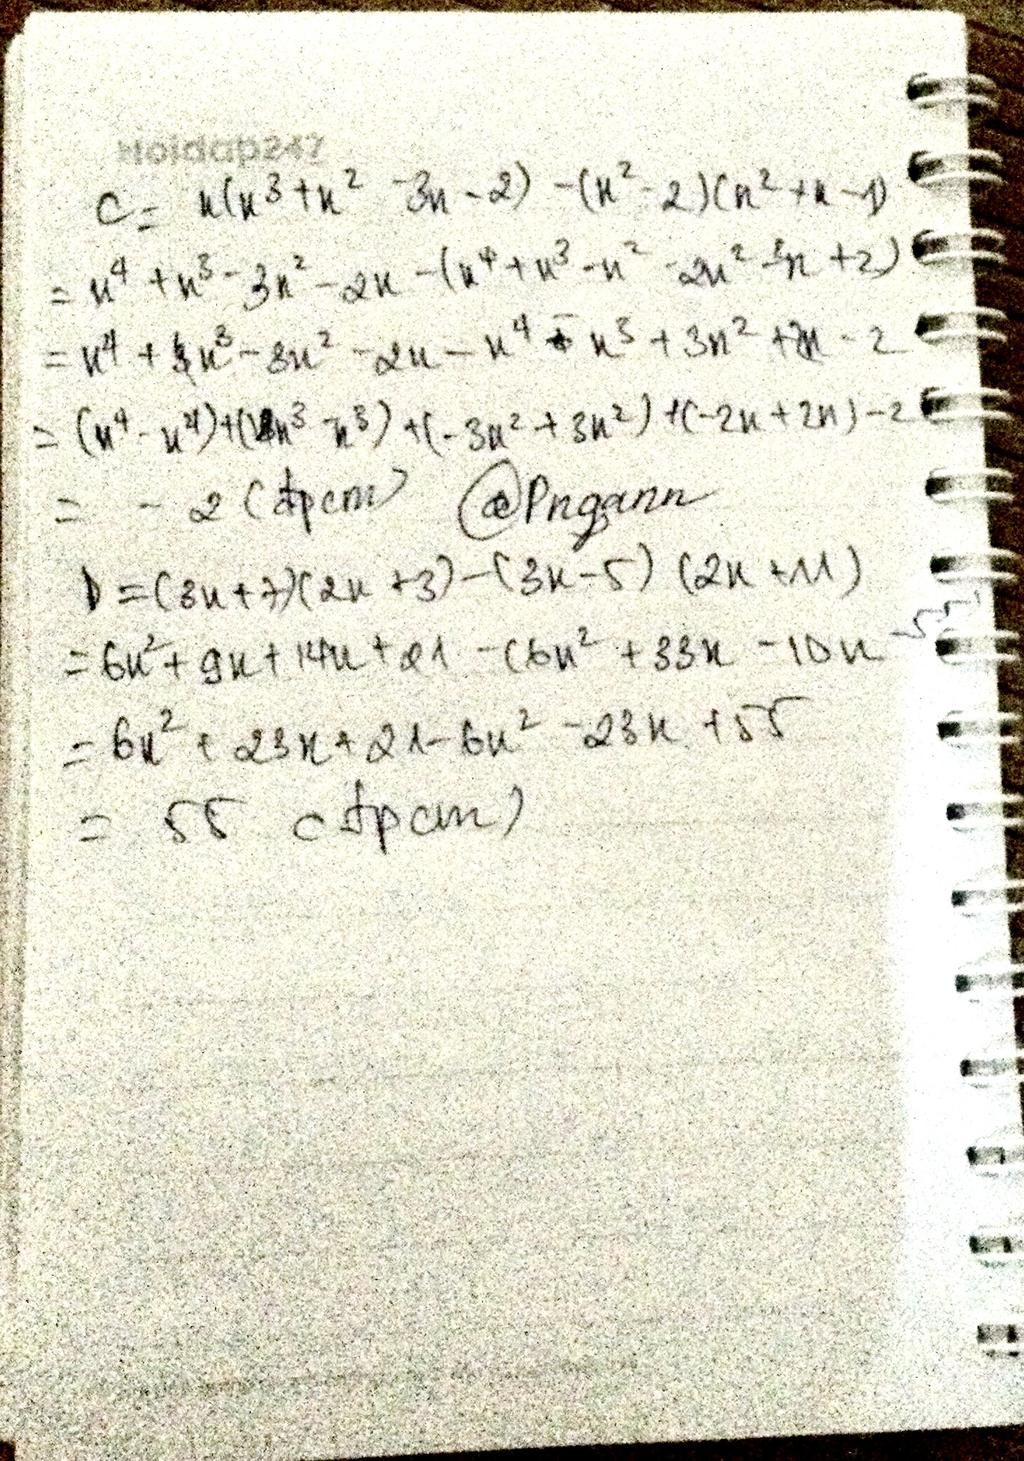 Hoidap247
C = x(x³+x² -3x-2) -(x²-2)(x²+x-1)
= x⁴ +x³-3x²-2x-(x⁴+x³-x² -2x²-2x+2)
= x⁴ + x³-3x² -2x-x⁴ - x³+3x²+2x-2
= (x⁴-x⁴)+(x³-x³)+(-3x²+3x²)+(-2x+2x)-2
= -2 (đpcm) @Pngann
D =(3x+7)(2x+3)-(3x-5)(2x+11)
=6x²+9x+14x+21 -(6x²+33x-10x-55)
= 6x²+23x+21-6x²-23x+55
= 55 (đpcm)